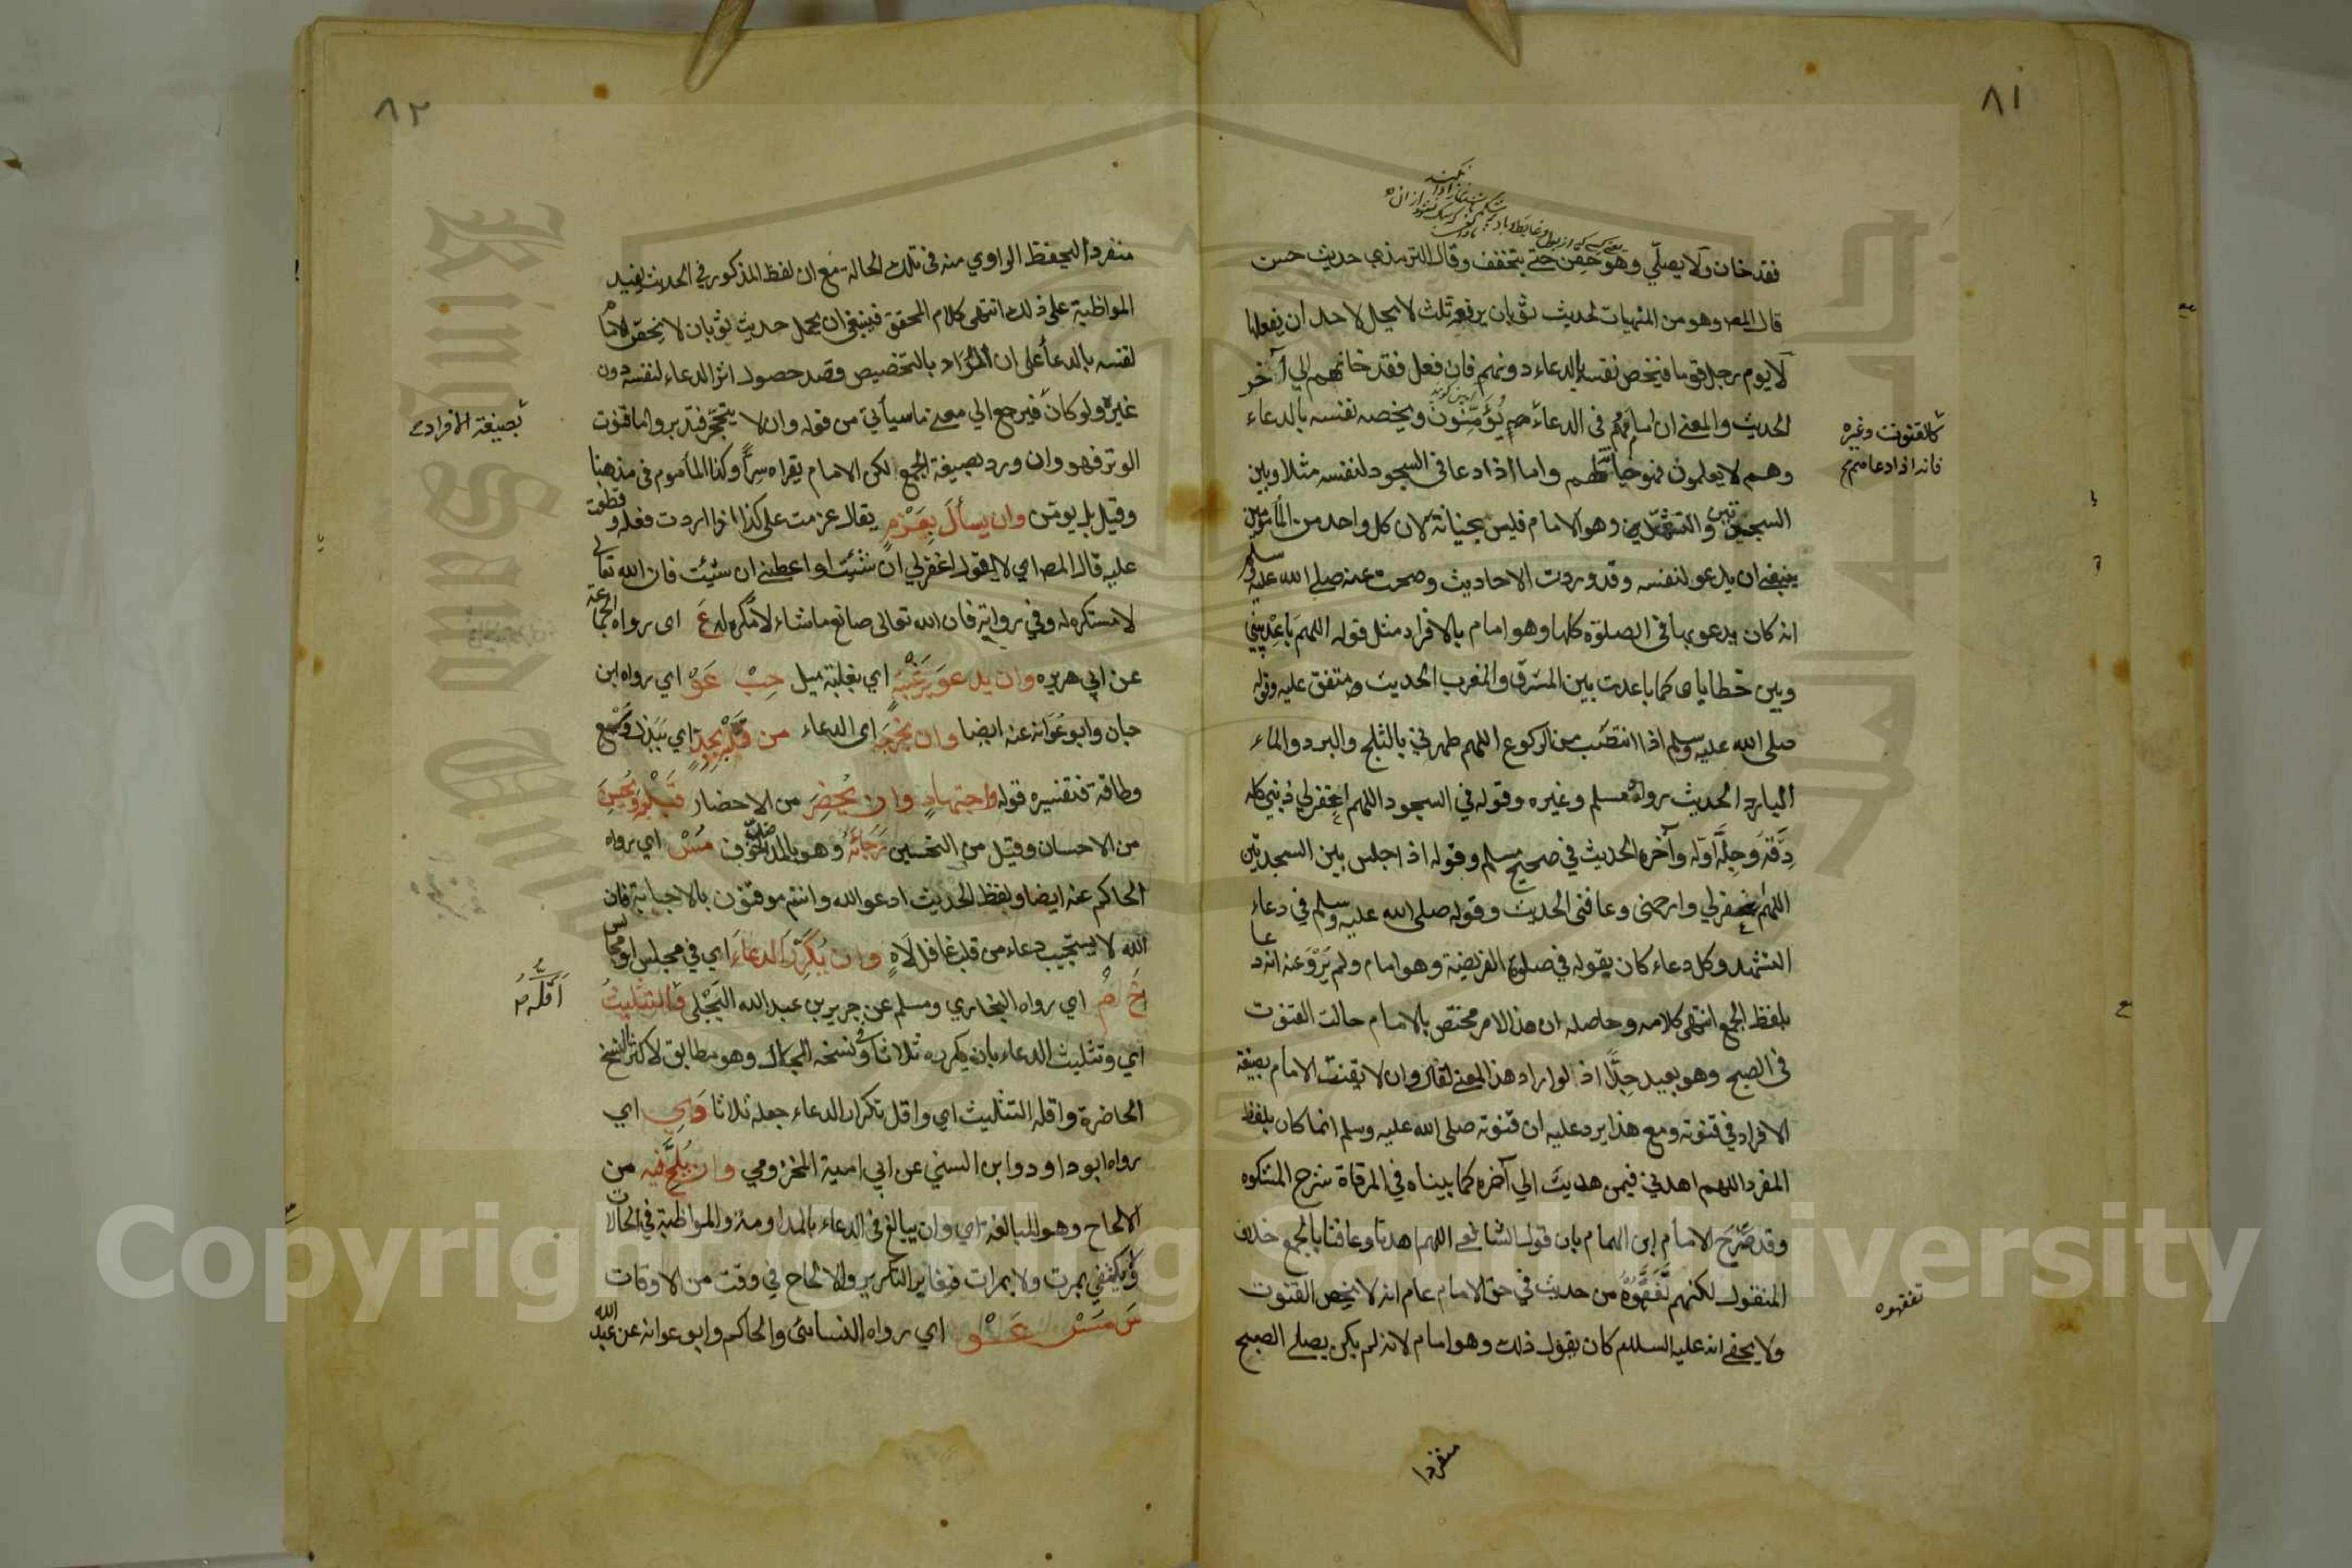 ٨١
فقد خان ولا يصلّي وهو حَقِن حتے يتخفف وقال الترمذي حديث حسن
قال المصـ وهو من المنهيات لحديث ثوبان يرفعه ثلث لا يحل لاحد ان يفعلها
لا يوم رجل قوما فيخص نفسه بالدعاء دونهم فان فعل فقد خانهم الي آخر
الحديث والمعنے ان امامهم في الدعاء هم يُؤَمِّنُونَ ويخصه نفسه بالدعاء
وهم لا يعلمون فهو خيانتهم واما اذا دعا في السجود لنفسه مثلا وبين
السجدتين والتشهد وهو الامام فليس بخيانة لان كل واحد من المأمومين
ينبغے ان يدعو لنفسه وقد وردت الاحاديث وصحت عنه صلے الله عليه وسلم
انه كان يدعو بها في الصلوة كلها وهو امام بالافراد مثل قوله اللهم باعِدْ بيني
وبين خطاياى كما باعدت بين المشرق والمغرب الحديث متفق عليه وقوله
صلى الله عليه وسلم اذا انتصب من الركوع اللهم طهرني بالثلج والبرد والماء
البارد الحديث رواه مسلم وغيره وقوله في السجود اللهم اغفرلي ذنبي كله
دِقَّهُ وَجِلَّه اوّله وآخره الحديث في صحيح مسلم وقوله اذا جلس بين السجدتين
اللهم اغفرلي وارحمنى وعافنى الحديث وقوله صلى الله عليه وسلم في دعاء
التشهد وكل دعاء كان يقوله في صلوة الفريضة وهو امام ولم يَرْوَ عنه انه دعا
بلفظ الجمع انتهى كلامه وحاصله ان هذا الامر مختص بالامام حالت القنوت
في الصبح وهو بعيد جدًّا اذ لو اراد هذا المعنے لقال وان لا يقنت الامام بصيغة
الافراد في قنوته ومع هذا يرد عليه ان قنوته صلى الله عليه وسلم انما كان بلفظ
المفرد اللهم اهدني فيمن هديت الي آخره كما بيناه في المرقاة شرح المشكوة
وقد صَرَّحَ الامام ابن الهمام بان قول الشافعے اللهم اهدنا وعافنا بالجمع خلاف
المنقول لكنهم تَفَقَّهُوُهُ من حديث في حق الامام عام انه لا يخص القنوت
ولا يخفے انه عليه السلام كان يقول ذلك وهو امام لانه لم يكن يصلے الصبح
منفردا
كالقنوت وغيره
فانه اذا دعا
تفقهوه
٨٢
منفردا ليحفظ الراوي منه في تلك الحالة مع ان لفظ المذكور في الحديث يفيد
المواظبة على ذلك انتهى كلام المحقق فينبغي ان يحمل حديث ثوبان لا يخص الامام
نفسه بالدعأ على ان المُرَاد بالتخصيص وقصد حصول اثر الدعاء لنفسه دون
غيره ولو كان فيرجع الي معنے ما سيأتي من قوله وان لا يتحجّر فتدبر واما قنوت
الوتر فهو وان ورد بصيغة الجمع لكن الامام يقراه سِرًّا وكذا المأموم في مذهبنا
وقيل بل يومّن وان يسألَ بِعَزْمٍ يقال عزمت على كذا اذا اردت فعله وقطعت
عليه قال المصـ اي لا يقول اغفرلي ان شئت او اعطنے ان شئت فان الله تعالى
لا مستكره له وفي رواية فان الله تعالى صانع ما شاء لا مُكره له عَ اى رواه الجماعة
عن ابي هريره وان يدعوَ بِرَغْبَةٍ اي بغلبة ميل حِبْ عَوْ اي رواه ابن
حبان وابو عوانه عنه ايضا وان يخرجه اى الدعاء من قَلْبِه بِجِدٍّ اي ببذل وُسْعٍ
وطاقة فتفسيره قوله واجتهادٍ وان يُحْضِرَ من الاحضار قَلْبَه ويُحْسِنَ
من الاحسان وقيل من التحسين رَجَاءَهُ وهو بالمد ضدّ الخوف مَسْ اي رواه
الحاكم عنه ايضا ولفظ الحديث ادعو الله وانتم موقنون بالاجابة فان
الله لا يستجيب دعاء من قلب غافل لَاهٍ وان يُكَرِّرَ الدعاءَ اي في مجلس او مجالس
خَ مْ اي رواه البخاري ومسلم عن جرير بن عبد الله البَجَلى فالتثليثُ
اي وتثليث الدعاء بان يكرره ثلاثا وفي نسخه الجمال وهو مطابق لاكثر النسخ
الحاضرة واقله التثليث اي واقل تكرار الدعاء جعله ثلاثا دَ ي اي
رواه ابو داود وابن السني عن ابي امية المخزومي وان يُلِحَّ فيه من
الالحاح وهو المبالغة اي وان يبالغ في الدعاء بالمداومة والمواظبة في الحالات
ولا يكتفي بمرت ولا بمرات فيغاير التكرير والالحاح في وقت من الاوقات
سَ مَسْ عَوْ اي رواه النسائى والحاكم وابو عوانه عن عبد الله
بصيغة الافراد
اَقَلُّهُ
Copyright © King Saud University